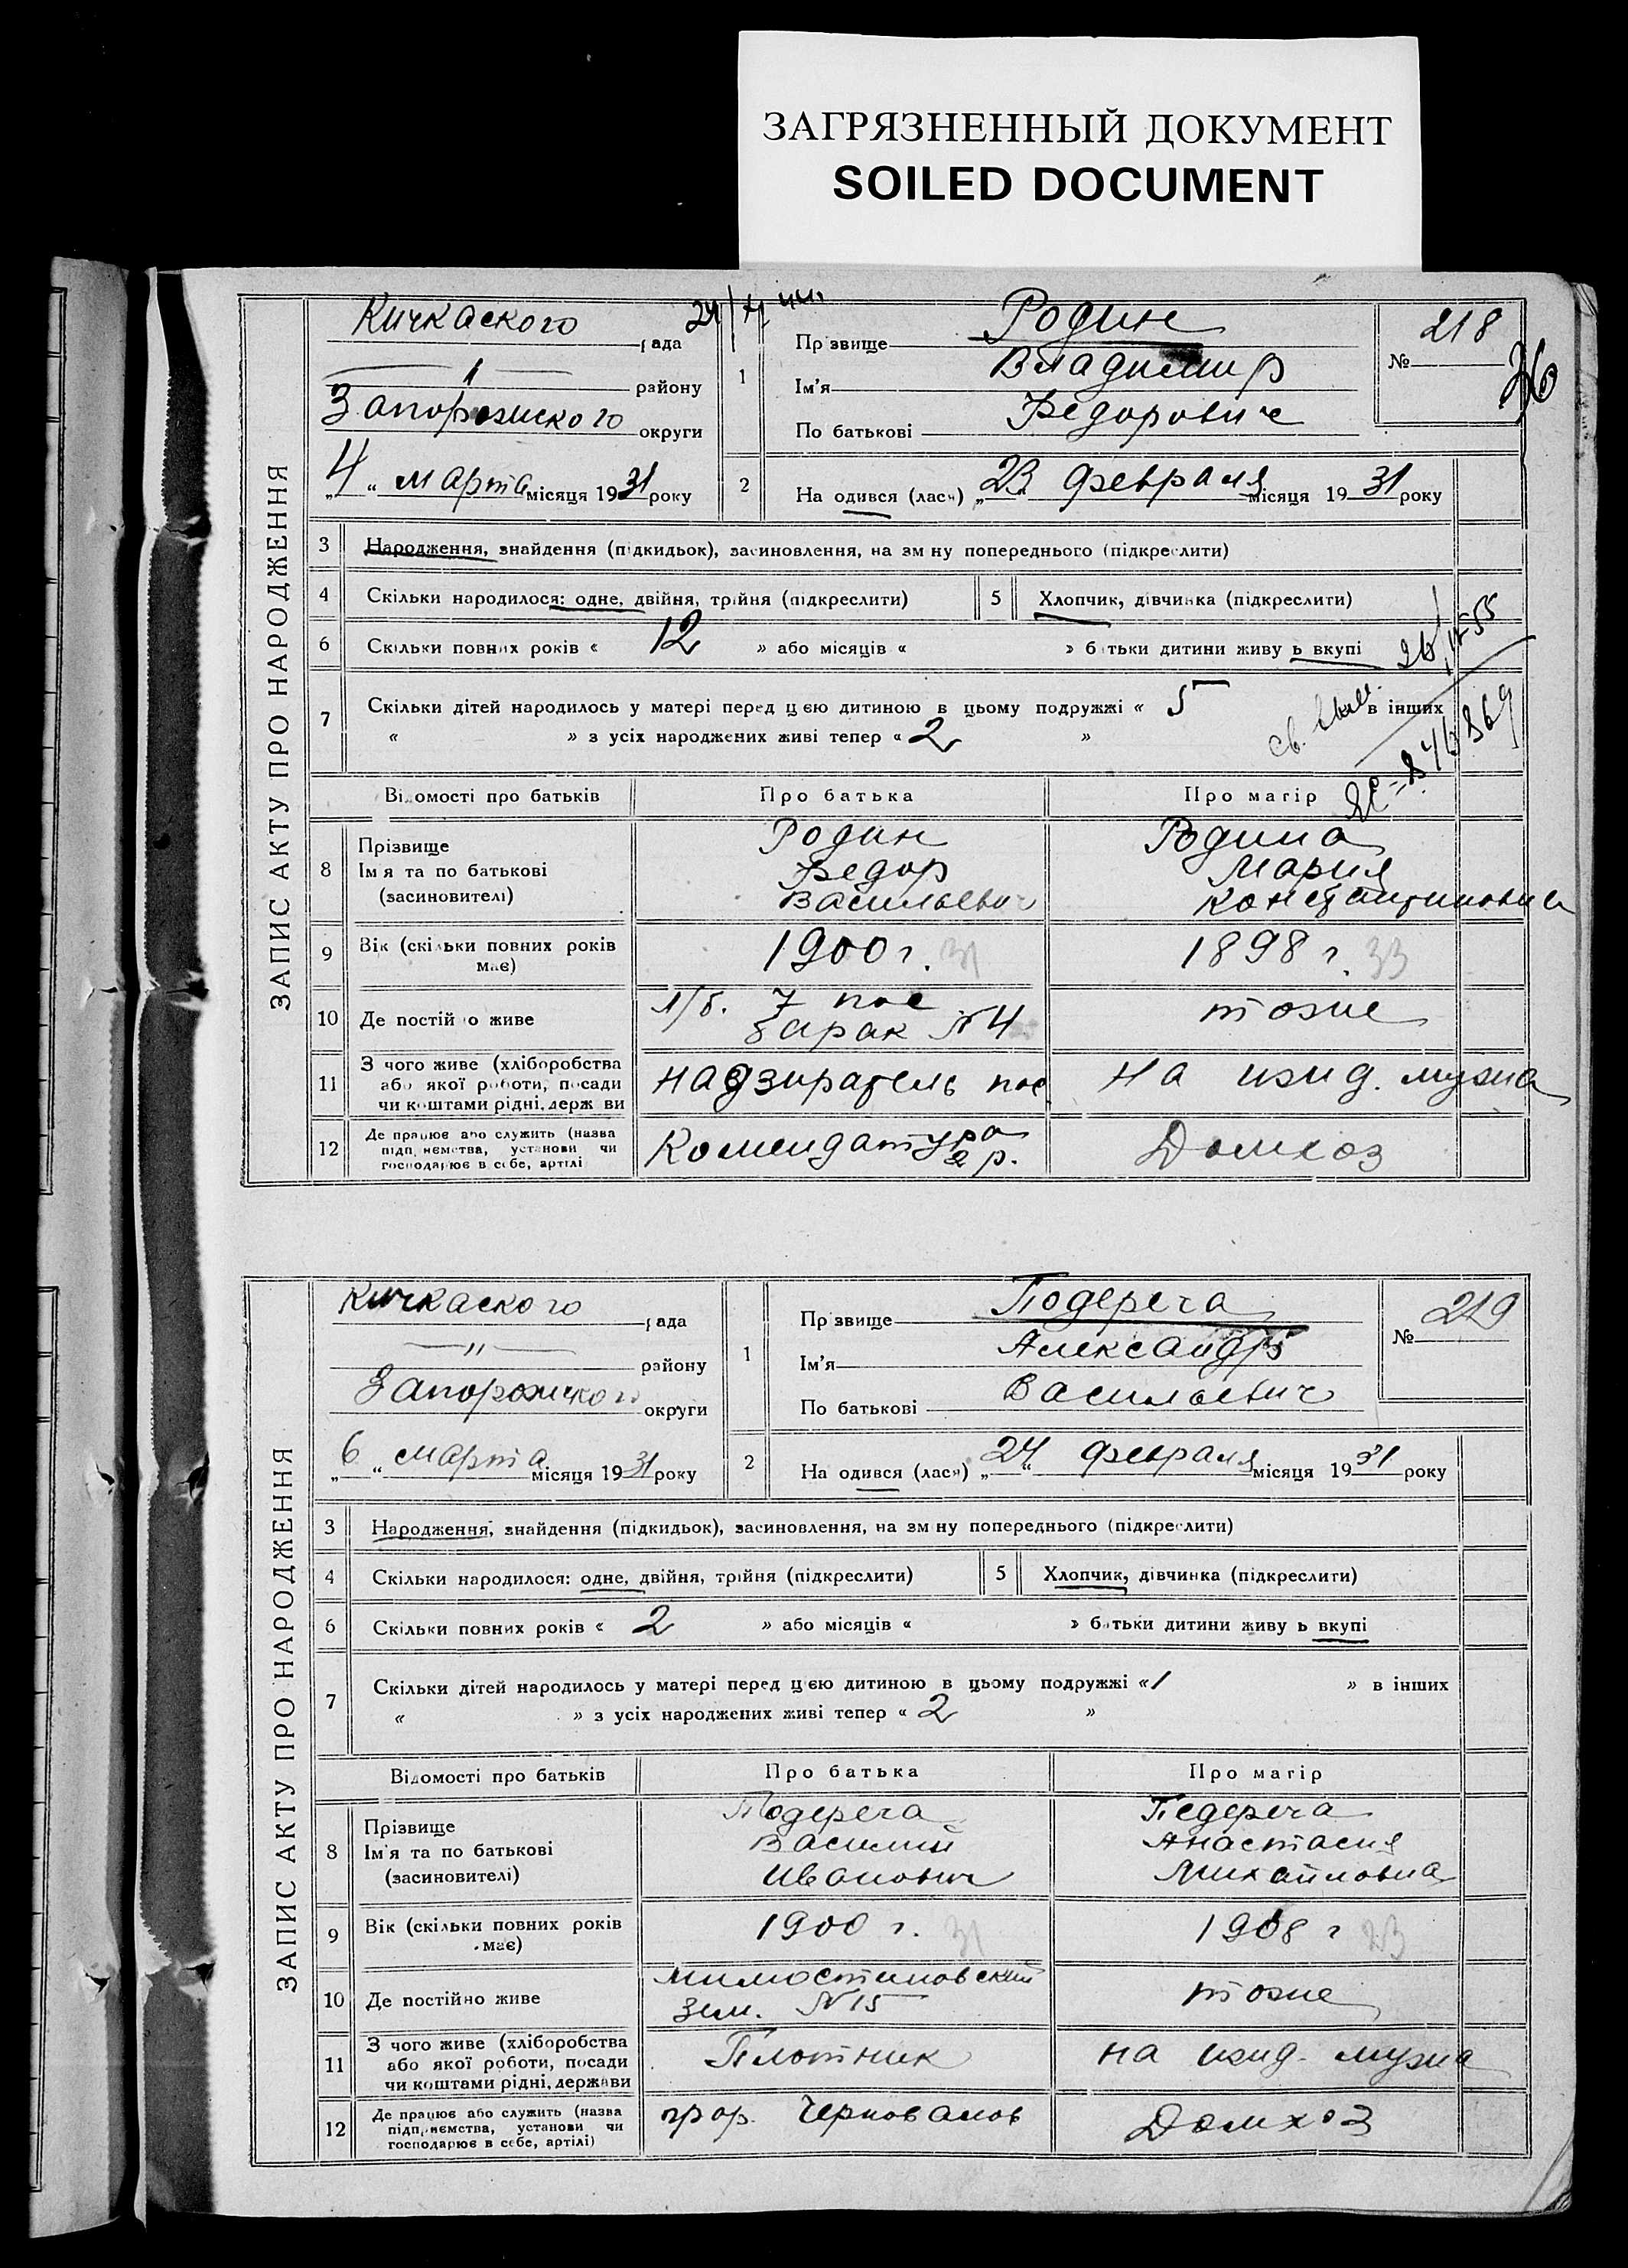 ЗАГРЯЗНЕННЫЙ ДОКУМЕНТ
SOILED DOCUMENT
ЗАПИС АКТУ ПРО НАРОДЖЕННЯ
Кичкаского рада
— " — району
Запорожского округи
„4“ марта місяця 1931 року
1 Прізвище Родин
Ім'я Владимир
По батькові Федорович
№ 218
36
2 Народився (лася) „23“ февраля місяця 1931 року
3 Народження, знайдення (підкидьок), засиновлення, на зміну попереднього (підкреслити)
4 Скільки народилося: одне, двійня, трійня (підкреслити) 5 Хлопчик, дівчинка (підкреслити)
6 Скільки повних років « 12 » або місяців « » батьки дитини живуть вкупі
7 Скільки дітей народилось у матері перед цією дитиною в цьому подружжі « 5 в інших
« » з усіх народжених живі тепер « 2 »
Відомості про батьків Про батька Про матір
8 Прізвище Ім'я та по батькові (засиновителі)
Родин Федор Васильевич
Родина Мария Константиновна
9 Вік (скільки повних років має) 1900 г. 31 1898 г. 33
10 Де постійно живе
л/б. 7 пос барак №4
тоже
11 З чого живе (хліборобства або якої роботи, посади чи коштами рідні, держави
надзиратель пос
на ижд. мужа
12 Де працює або служить (назва підприємства, установи чи господарює в себе, артілі
Комендатура 2 р.
Домхоз
ЗАПИС АКТУ ПРО НАРОДЖЕННЯ
Кичкаского рада
— " — району
Запорожского округи
„6“ марта місяця 1931 року
1 Прізвище Подереча
Ім'я Александр
По батькові Васильевич
№ 219
2 Народився (лася) „24“ февраля місяця 1931 року
3 Народження, знайдення (підкидьок), засиновлення, на зміну попереднього (підкреслити)
4 Скільки народилося: одне, двійня, трійня (підкреслити) 5 Хлопчик, дівчинка (підкреслити)
6 Скільки повних років « 2 » або місяців « » батьки дитини живуть вкупі
7 Скільки дітей народилось у матері перед цією дитиною в цьому подружжі « 1 » в інших
« » з усіх народжених живі тепер « 2 »
Відомості про батьків Про батька Про матір
8 Прізвище Ім'я та по батькові (засиновителі)
Подереча Василий Иванович
Педереча Анастасия Михайловна
9 Вік (скільки повних років має) 1900 г. 31 1908 г 23
10 Де постійно живе
зем. №15
тоже
11 З чого живе (хліборобства або якої роботи, посади чи коштами рідні, держави
Плотник
на ижд. мужа
12 Де працює або служить (назва підприємства, установи чи господарює в себе, артілі)
Домхоз